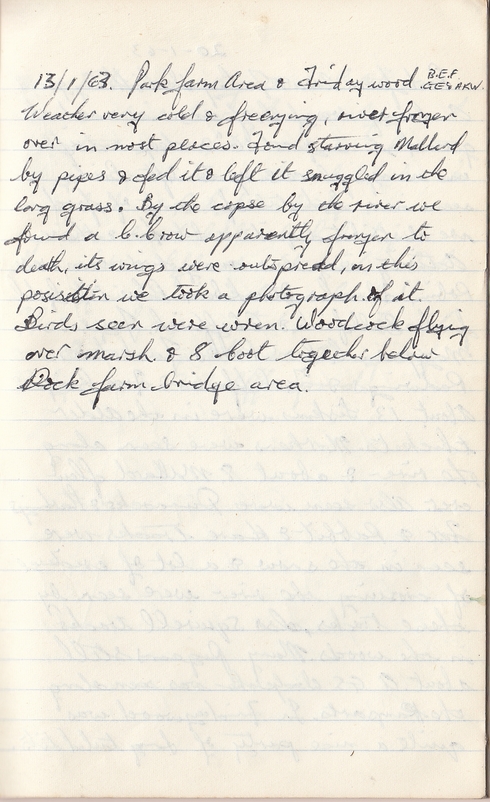 13/1/63. Park farm Area & Friday wood. B.E.F
Weather very cold & freezing, river frozen
over in most places. Found starving Mallard
by pipes & fed it & left it snuggled in the
long grass. By the copse by the river we
found a C. Crow apparently frozen to
death, its wings were outspread, in this
position we took a photograph of it.
Birds seen were wren. Woodcock flying
over marsh. & 8 Coot together below
farm bridge area.